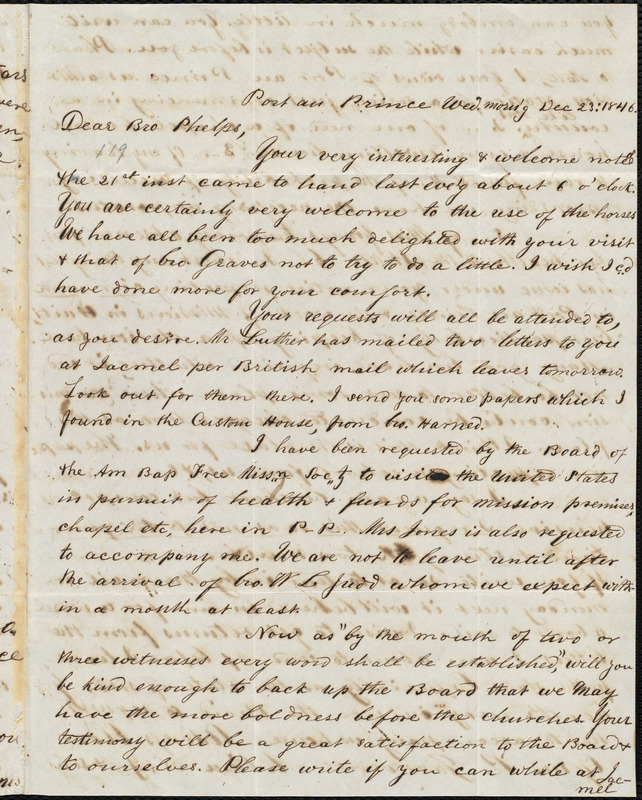 Port au Prince Wed. morn'g Dec 23: 1846.
Dear Bro Phelps,
119
Your very interesting & welcome note of
the 21st inst came to hand last eve'g about 6 o'clock.
You are certainly very welcome to the use of the horses
We have all been too much delighted with your visit
& that of bro. Graves not to try to do a little. I wish I co'd
have done more for your comfort.
Your requests will all be attended to,
as you desire. Mr Luther has mailed two letters to you
at Jacmel per British mail which leaves tomorrow.
Look out for them there. I send you some papers which I
found in the Custom House, from bro. Harned.
I have been requested by the Board of
the Am Bap Free Miss.n Soc.ty to visit the United States
in pursuit of health & funds for mission premises,
chapel etc, here in P-P. Mrs Jones is also requested
to accompany me. We are not to leave until after
the arrival of bro. W L Judd whom we expect with-
in a month at least
Now as "by the mouth of two or
three witnesses every word shall be established," will you
be kind enough to back up the Board that we may
have the more boldness before the churches. Your
testimony will be a great satisfaction to the Board &
to ourselves. Please write if you can while at Jac-
mel